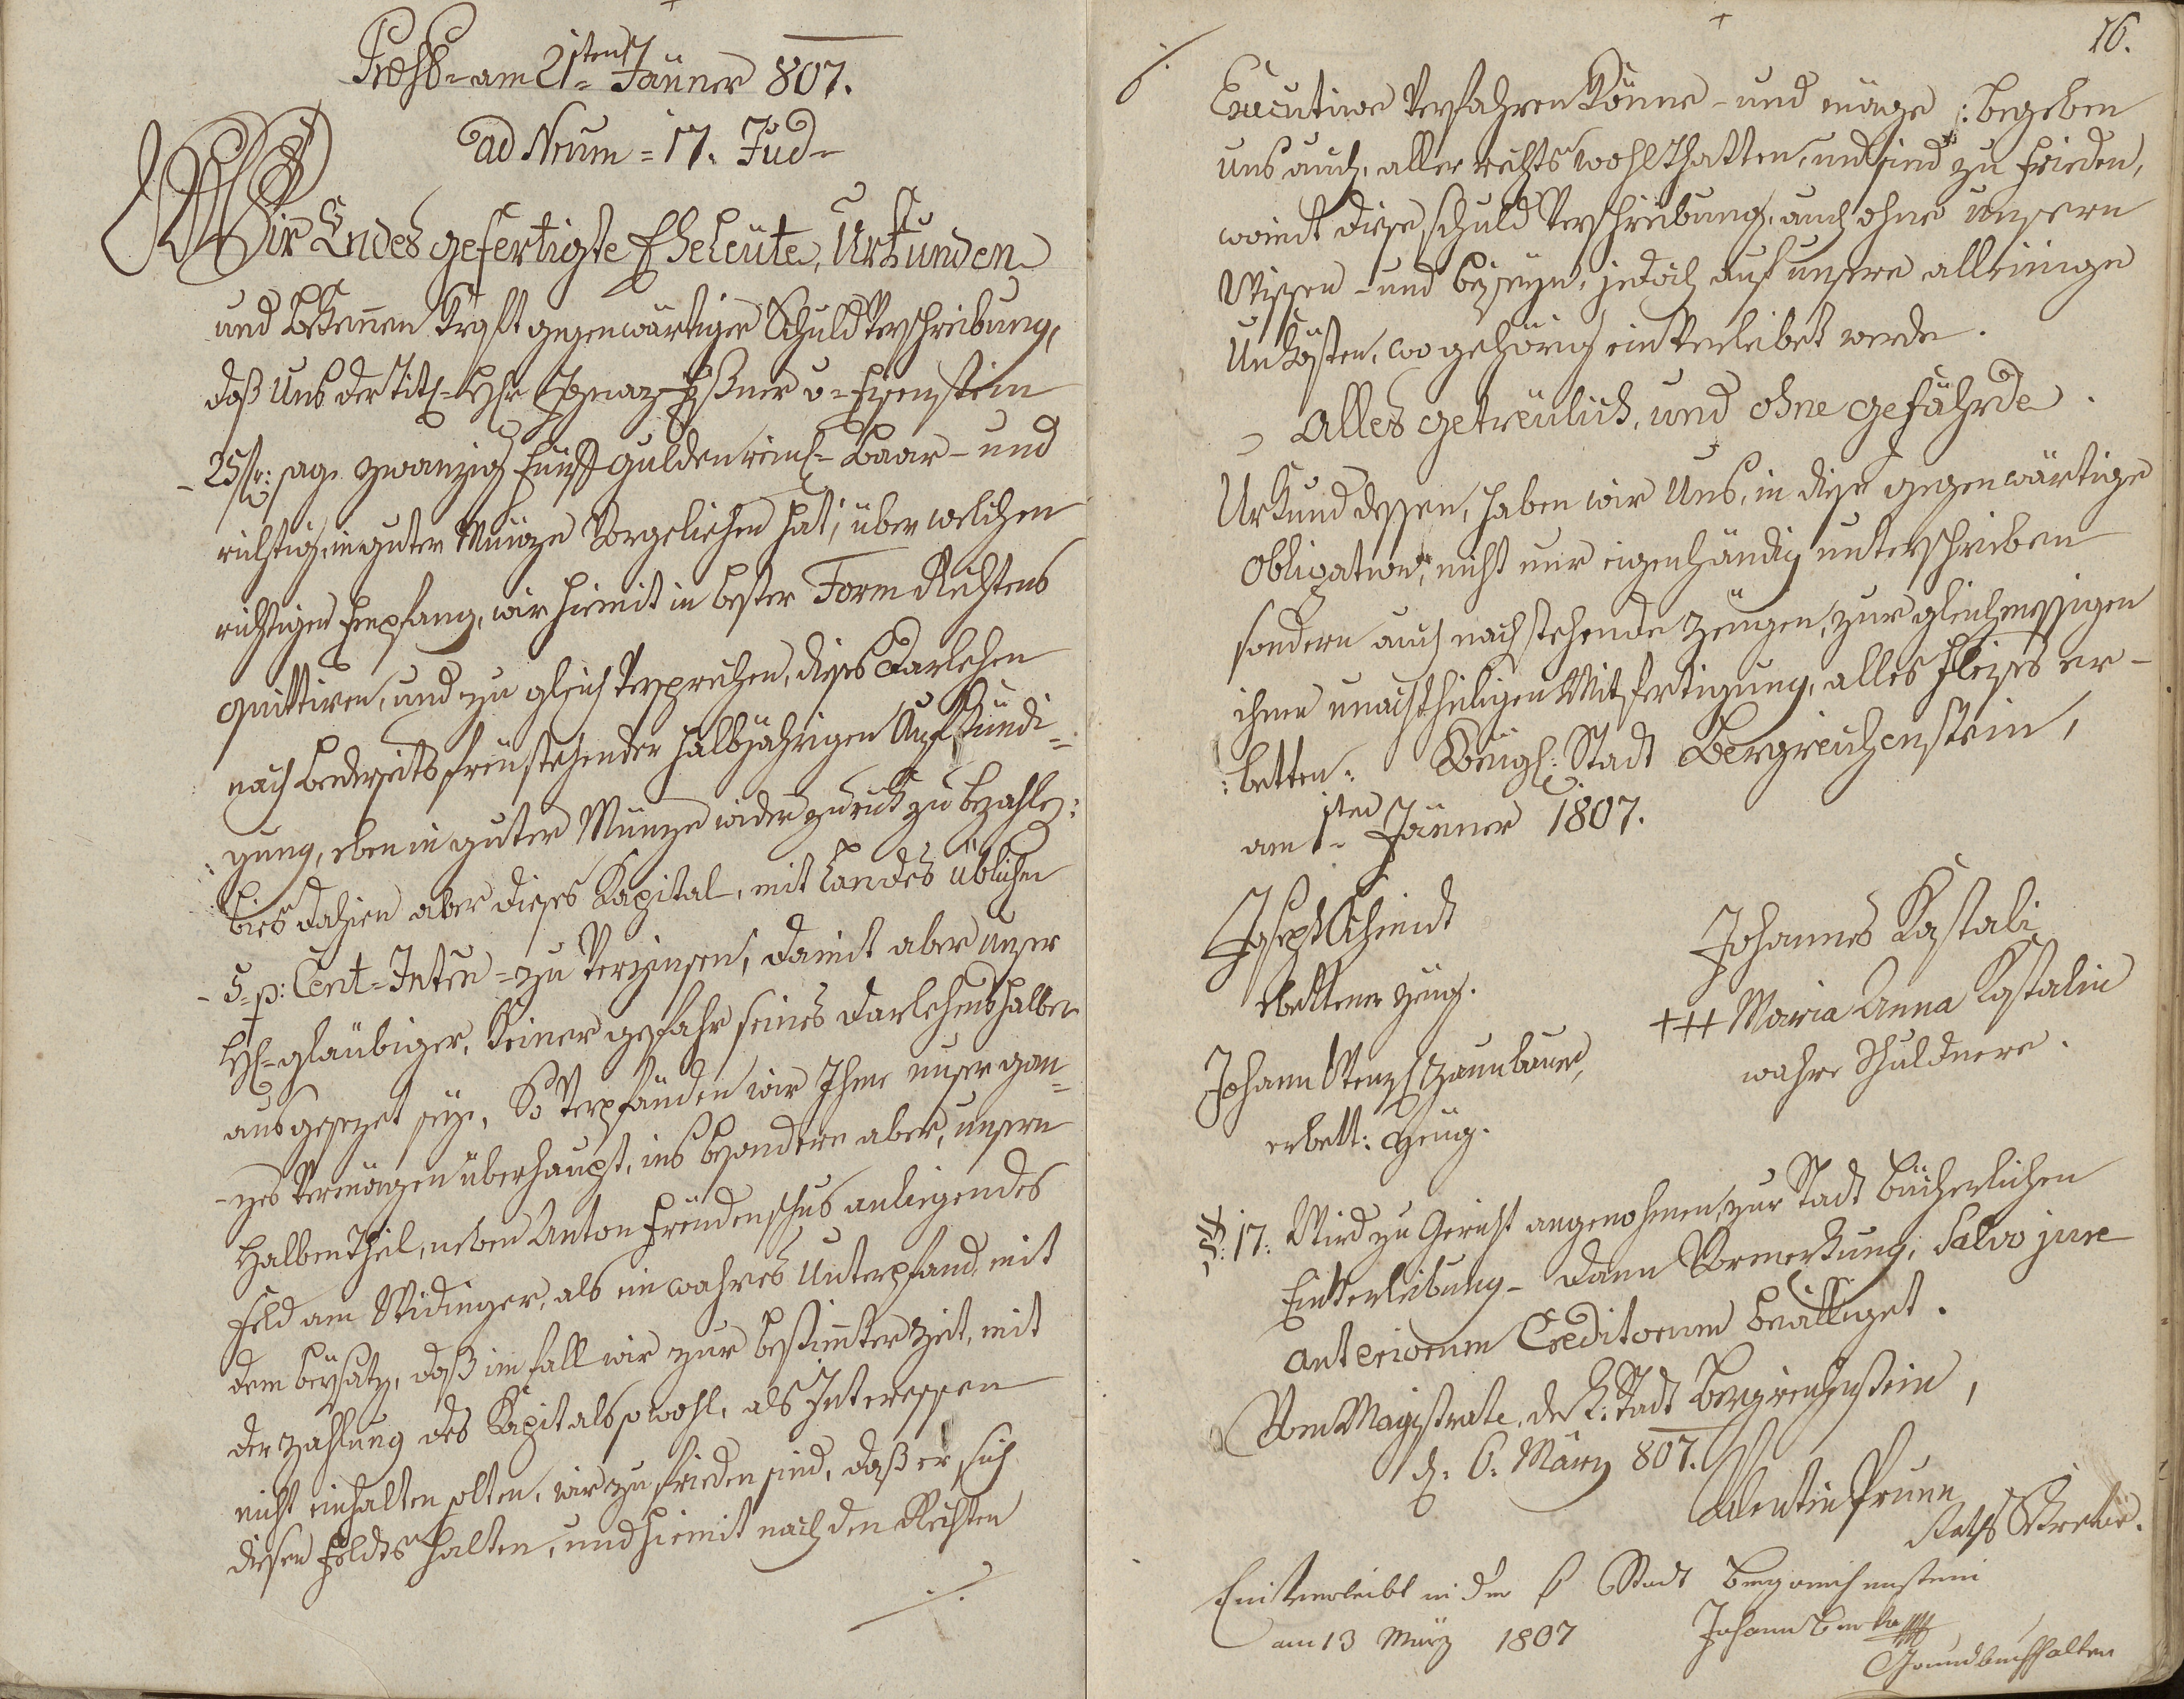 Præst= am 21sten= Jänner 807.
ad Num= 17. Jud=
Wir Endes gefertigte Eheleüte, Urkunden
und bekennen Kraft gegenwärtiger Schuld Verschreibung,
daß Uns der Titl= H: Ignaz Eißner v= Eisenstein
- 25 fr: sage zwanzig Fünf Gulden rein= Baar- und
richtig, in guter Münze Vorgeliehen hat; über welchen
richtigen Empfang, wir hiemit in bester Form Rechtens
quittiren, und zu gleich Versprechen, dieses Darlehen
nach beederseits freüstehender halbjährigen Aufkündi=
gung, eben in guter Münze wider zurück zu bezahlen:
bies dahien aber dieses Kapital, mit Landes üblichen
- 5= p: Cent= Inten= zu Verzinsen; damit aber unser
H= gläubiger, keiner gefahr seines Darlehens halber
ausgesezet seye, So Verpfänden wir Ihme unser gan=
- zes Vermögen überhaupt, ins besondere aber, unsern
Halben Theil, neben Anton Freüdenschus anliegendes
Feld am Widinger, als ein wahres Unterpfand, mit
dem beysatz, daß im fall wir zur bestimmter Zeit, mit
der Zahlung des Kapitals sowohl, als Interessen
nicht einhalten solten, wir zu frieden sind, daß er sich
diesen Feldes halten, und hiemit nach den Rechten
./.
16.
./.
Executive Verfahren könne- und möge /: begeben
uns auch, aller rechts wohlthatten, und sind zu frieden,
womit diese Schuld Verschreibung, auch ohne unsern
Wissen- und beyseyn, jedoch auf unsere alleinige
Unkösten, wo gehörig ein Verleibet werde.
- Alles getreülich, und ohne gefährde.
Urkund dessen, haben wir Uns, in diese gegenwärtige
Obligation, nicht nur eigenhändig unterschrieben
sondern auch nachstehende Zeügen, zur gleichmessigen
ihnen unachtheiligen Mitfertigung, alles fleises er-
: betten: Königl: Stadt Bergreichenstein,
am 1sten Jänner 1807.
Joseph Schmidt
erbettener Zeüg.
Johannes Kastali
+++ Maria Anna Kastalin
wahre Schuldnere.
Johann Wenzl Zaunbauer,
erbett: Zeüg.
17. Wird zu Gericht angenohmen, zur Stadt bücherlichen
Einverleibung- dann Vormerkung, Salvo jure
anteriorum Creditorum bewilliget.
Vom Magistrate, der k: Stadt Bergreichenstein,
d: 6. März 807.
Valentin Prunn
Raths
Einverleibt in der k Stadt Bergreichenstein
am 13 März 1807
Johann
Grundbuchhalter